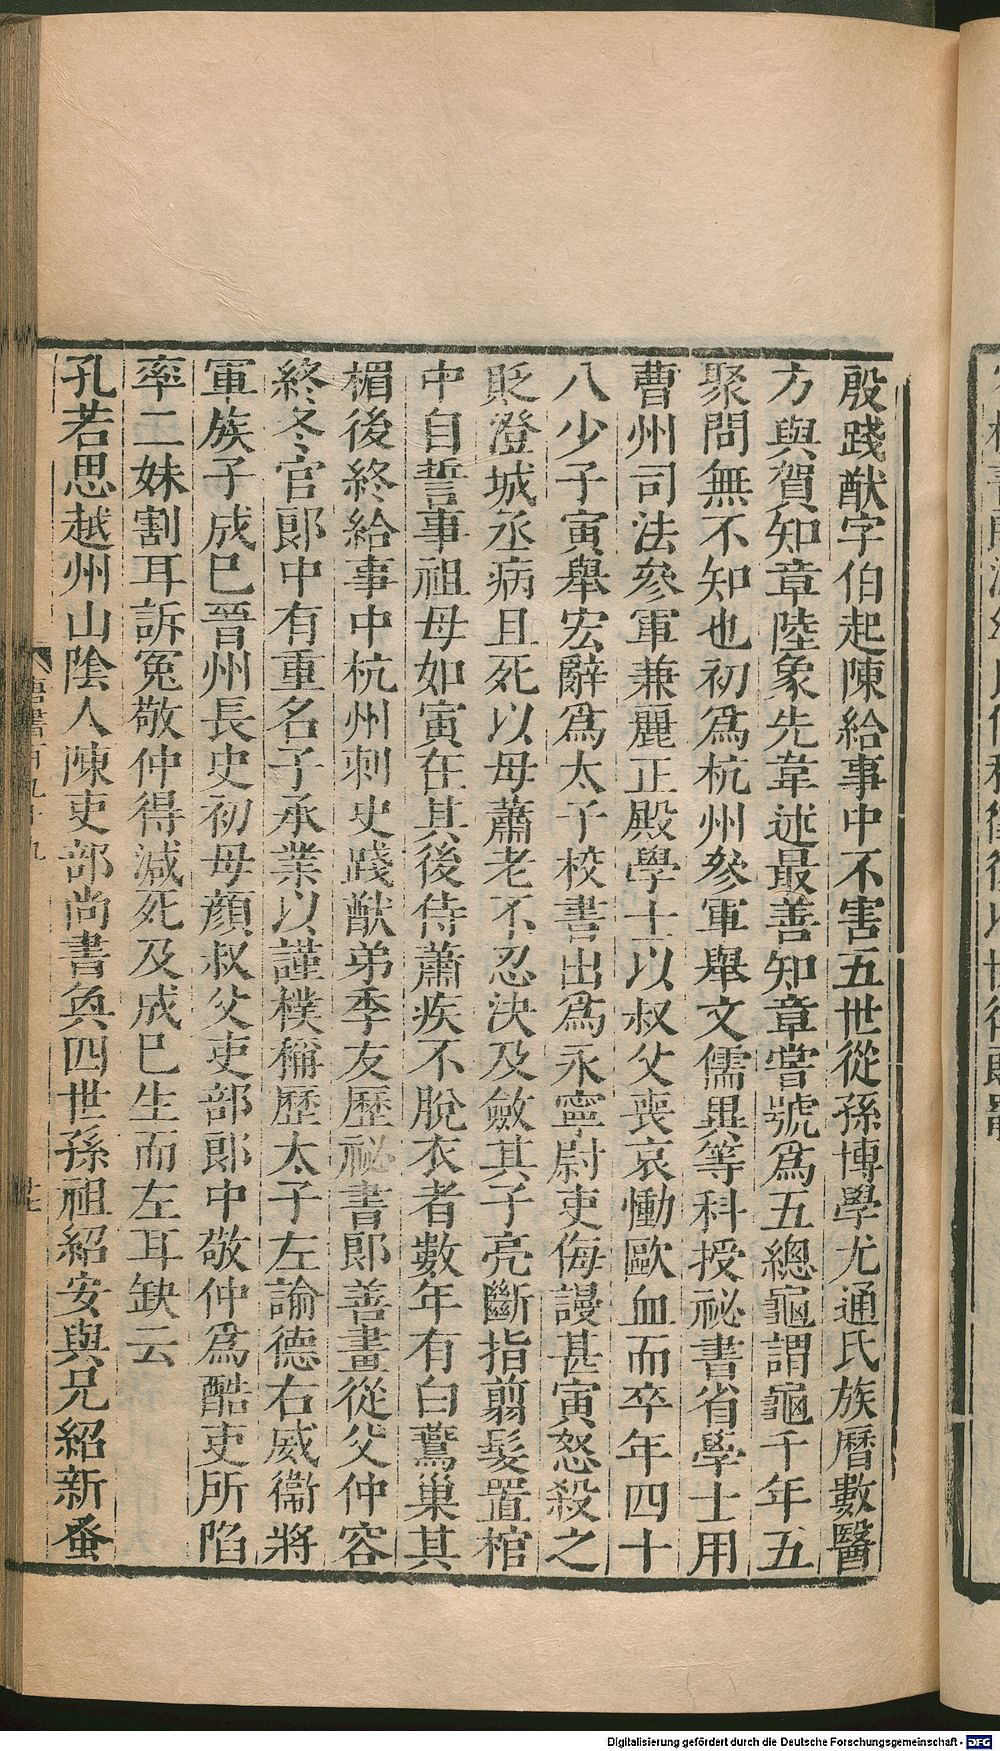 殷踐猷字伯起陳給事中不害五世從孫博學尤通氏族曆數醫
方與賀知章陸象先韋述最善知章嘗號爲五總龜謂龜千年五
聚問無不知也初爲杭州參軍舉文儒異等科授祕書省學士用
曹州司法參軍兼麗正殿學士以叔父喪哀慟歐血而卒年四十
八少子寅舉宏辭爲太子校書出爲永寧尉吏侮謾甚寅怒殺之
貶澄城丞病且死以母蕭老不忍決及斂其子亮斷指翦髮置棺
中自誓事祖母如寅在其後侍蕭疾不脫衣者數年有白鷰巢其
楣後終給事中杭州刺史踐猷弟季友歷祕書郎善畫從父仲容
終冬官郎中有重名子承業以謹樸稱歷太子左諭德右威衞將
軍族子成巳晉州長史初母顏叔父吏部郎中敬仲爲酷吏所陷
率二妹割耳訴冤敬仲得減死及成巳生而左耳缺云
孔若思越州山陰人陳吏部尚書奐四世孫祖紹安與兄紹新蚤
Digitalisierung gefördert durch die Deutsche Forschungsgemeinschaft - DFG